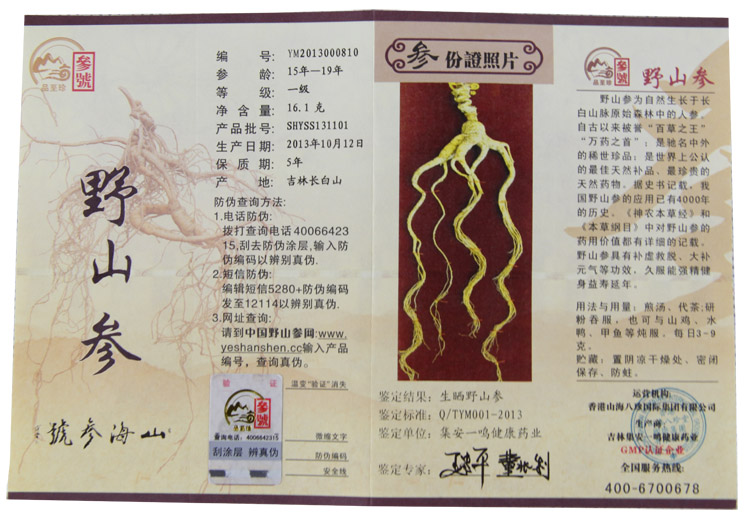 參號
品至珍
野山參
山海參號
编号: YM2013000810
参龄: 15年—19年
等级: 一级
净含量: 16.1克
产品批号: SHYSS131101
生产日期: 2013年10月12日
保质期: 5年
产地: 吉林长白山
防伪查询方法:
1.电话防伪:
拨打查询电话40066423
15,刮去防伪涂层,输入防
伪编码以辨别真伪.
2.短信防伪:
编辑短信5280+防伪编码
发至12114以辨别真伪.
3.网址查询:
请到中国野山参网:www.
yeshanshen.cc输入产品
编号，查询真伪。
验证
温变“验证”消失
參號
品至珍
查询电话: 4006642315
刮涂层 辨真伪
微缩文字
防伪编码
安全线
參份證照片
鉴定结果: 生晒野山参
鉴定标准: Q/TYM001-2013
鉴定单位: 集安一鸣健康药业
鉴定专家:
參號
品至珍
野山參
野山参为自然生长于长
白山脉原始森林中的人参，
自古以来被誉“百草之王”
“万药之首”；是驰名中外
的稀世珍品；是世界上公认
的最佳天然补品、最珍贵的
天然药物。据史书记载，我
国野山参的应用已有4000年
的历史。《神农本草经》和
《本草纲目》中对野山参的
药用价值都有详细的记载。
野山参具有补虚救脱、大补
元气等功效，久服能强精健
身益寿延年。
用法与用量：煎汤、代茶;研
粉吞服，也可与山鸡、水
鸭、甲鱼等炖服，每日3-9
克。
贮藏：置阴凉干燥处、密闭
保存、防蛀。
运营机构:
香港山海八珍国际集团有限公司
生产商
吉林集安一鸣健康药业
GMP认证企业
全国服务热线:
400-6700678